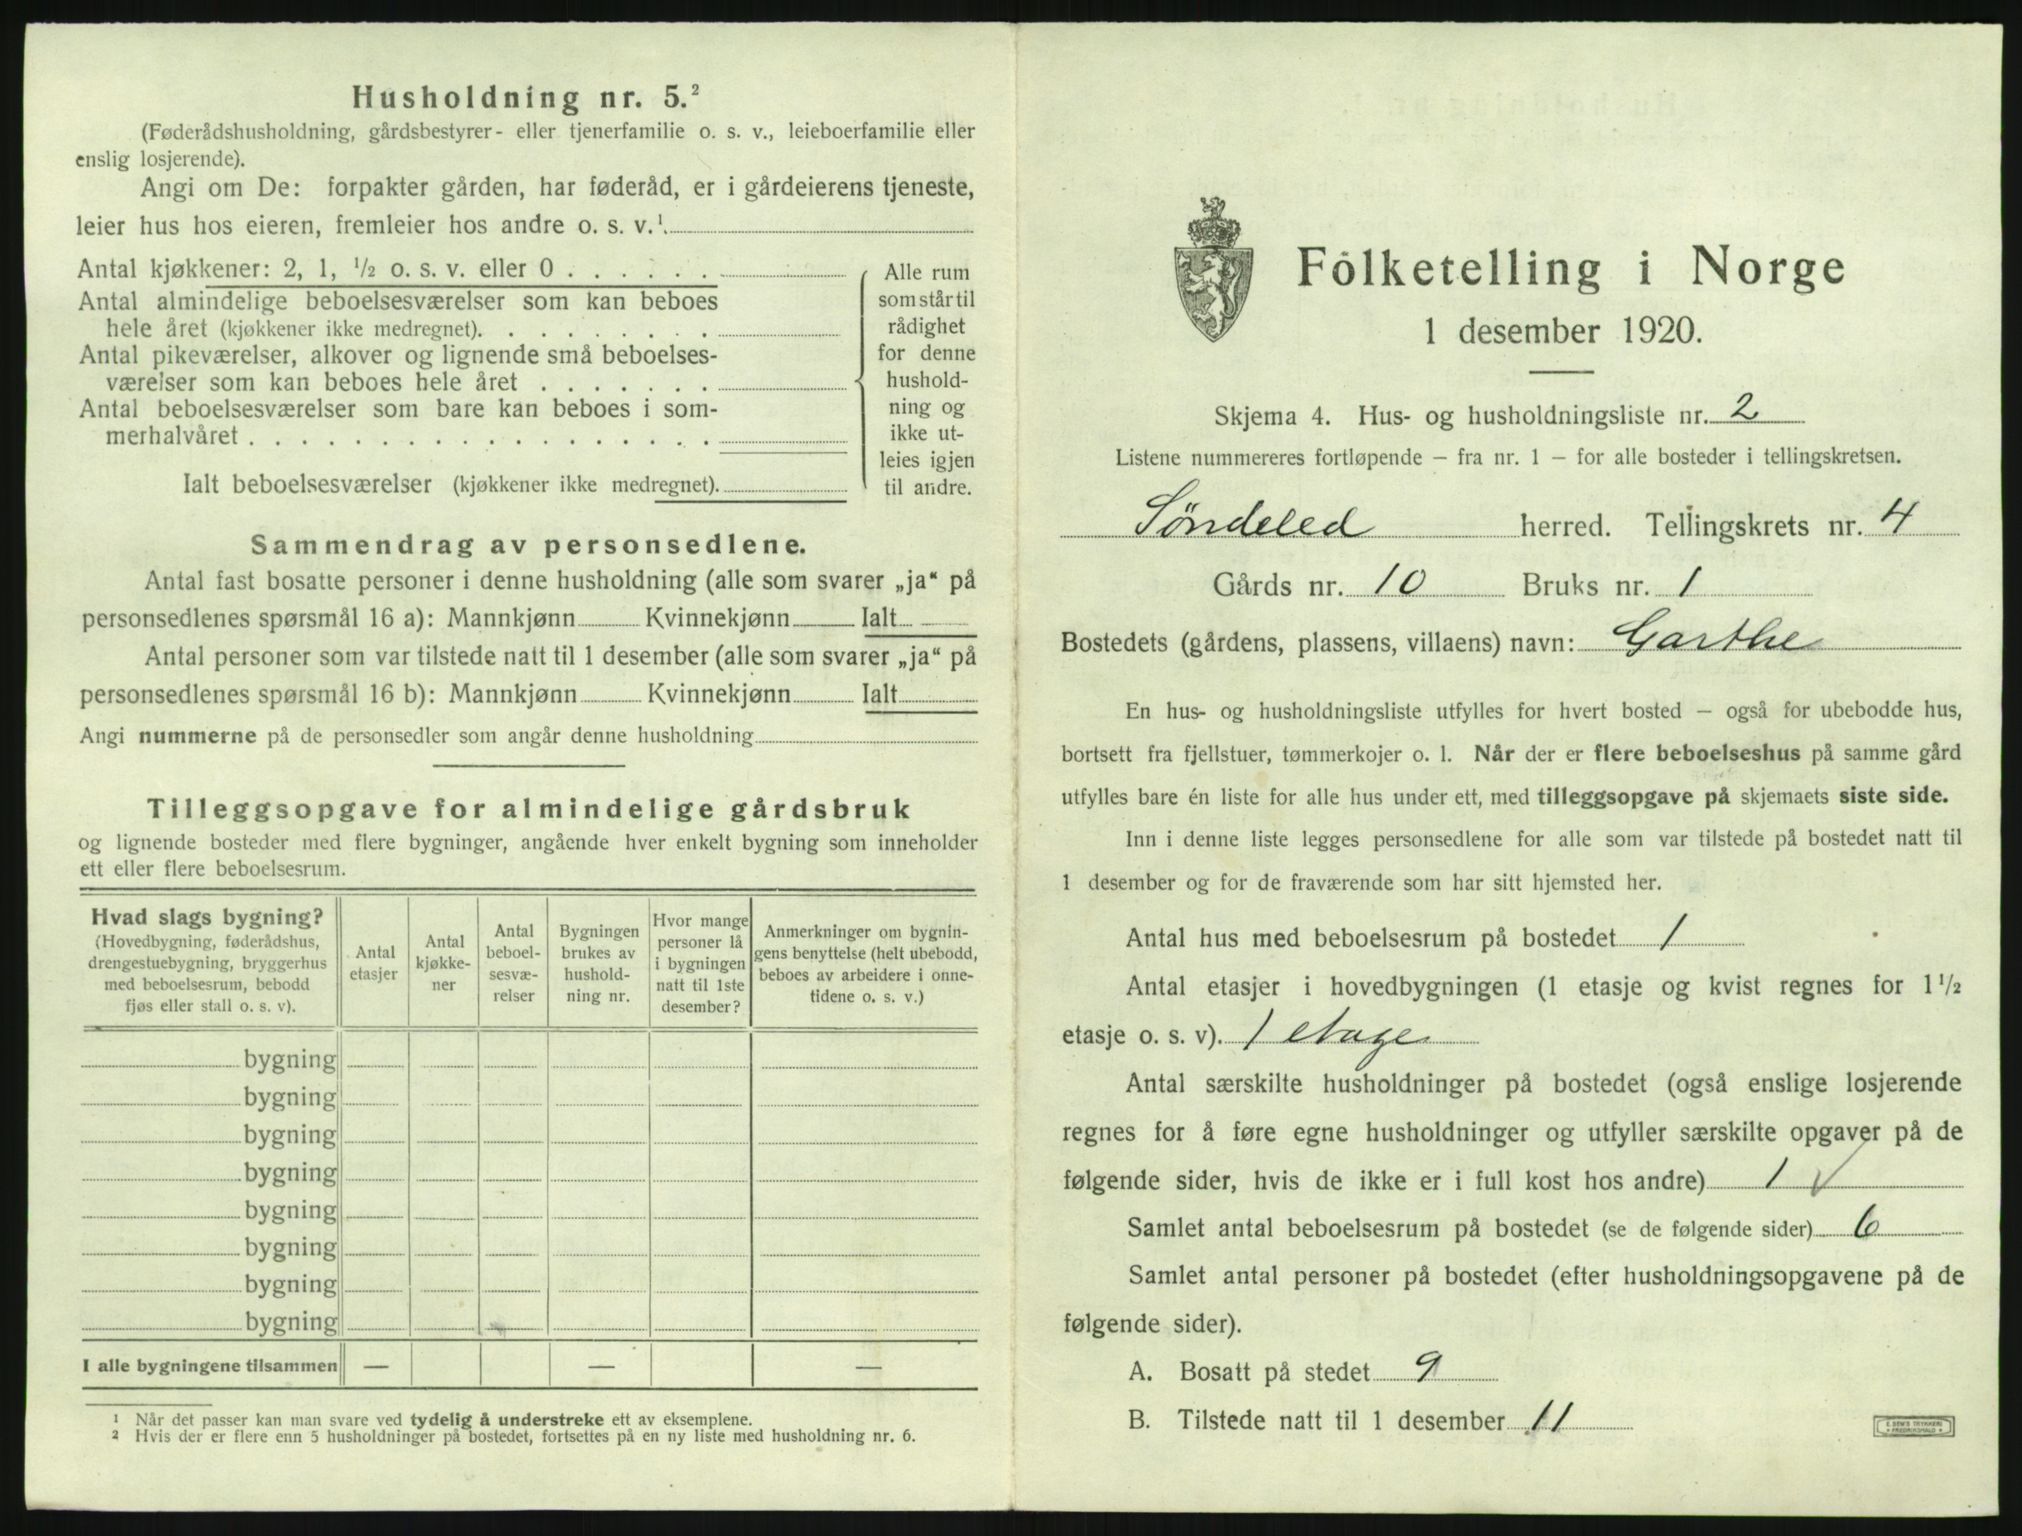 Husholdning nr. 5.²
(Føderådshusholdning, gårdsbestyrer- eller tjenerfamilie o. s. v., leieboerfamilie eller
enslig losjerende).
Angi om De: forpakter gården, har føderåd, er i gårdeierens tjeneste,
leier hus hos eieren, fremleier hos andre o. s. v.¹.
Antal kjøkkener: 2, 1, ½ o. s. v. eller 0 . . . . . .
Antal almindelige beboelsesværelser som kan beboes
hele året (kjøkkener ikke medregnet). . . . . . . . .
Antal pikeværelser, alkover og lignende små beboelses-
værelser som kan beboes hele året . . . . . . .
Antal beboelsesværelser som bare kan beboes i som-
merhalvåret . . . . . . . . . . . . . . . . . .
Ialt beboelsesværelser (kjøkkener ikke medregnet).
Alle rum
som står til
rådighet
for denne
hushold-
ning og
ikke ut-
leies igjen
til andre.
Sammendrag av personsedlene.
Antal fast bosatte personer i denne husholdning (alle som svarer „ja“ på
personsedlenes spørsmål 16 a): Mannkjønn Kvinnekjønn Ialt
Antal personer som var tilstede natt til 1 desember (alle som svarer „ja“ på
personsedlenes spørsmål 16 b): Mannkjønn Kvinnekjønn Ialt
Angi nummerne på de personsedler som angår denne husholdning
Tilleggsopgave for almindelige gårdsbruk
og lignende bosteder med flere bygninger, angående hver enkelt bygning som inneholder
ett eller flere beboelsesrum.
Hvad slags bygning?
(Hovedbygning, føderådshus,
drengestuebygning, bryggerhus
med beboelsesrum, bebodd
fjøs eller stall o. s. v).
Antal
etasjer
Antal
kjøkke-
ner
Antal
beboel-
sesvæ-
relser
Bygningen
brukes av
hushold-
ning nr.
Hvor mange
personer lå
i bygningen
natt til 1ste
desember?
Anmerkninger om bygnin-
gens benyttelse (helt ubebodd,
beboes av arbeidere i onne-
tidene o. s. v.)
bygning
bygning
bygning
bygning
bygning
bygning
bygning
bygning
I alle bygningene tilsammen — — —
¹ Når det passer kan man svare ved tydelig å understreke ett av eksemplene.
² Hvis der er flere enn 5 husholdninger på bostedet, fortsettes på en ny liste med husholdning nr. 6.
Folketelling i Norge
1 desember 1920.
Skjema 4. Hus- og husholdningsliste nr. 2
Listene nummereres fortløpende – fra nr. 1 – for alle bosteder i tellingskretsen.
Søndeled herred. Tellingskrets nr. 4
Gårds nr. 10 Bruks nr. 1
Bostedets (gårdens, plassens, villaens) navn: Garthe
En hus- og husholdningsliste utfylles for hvert bosted – også for ubebodde hus,
bortsett fra fjellstuer, tømmerkojer o. l. Når der er flere beboelseshus på samme gård
utfylles bare én liste for alle hus under ett, med tilleggsopgave på skjemaets siste side.
Inn i denne liste legges personsedlene for alle som var tilstede på bostedet natt til
1 desember og for de fraværende som har sitt hjemsted her.
Antal hus med beboelsesrum på bostedet 1
Antal etasjer i hovedbygningen (1 etasje og kvist regnes for 1½
etasje o. s. v). 1 etage
Antal særskilte husholdninger på bostedet (også enslige losjerende
regnes for å føre egne husholdninger og utfyller særskilte opgaver på de
følgende sider, hvis de ikke er i full kost hos andre) 1 √
Samlet antal beboelsesrum på bostedet (se de følgende sider) 6
Samlet antal personer på bostedet (efter husholdningsopgavene på de
følgende sider).
A. Bosatt på stedet 9
B. Tilstede natt til 1 desember 11